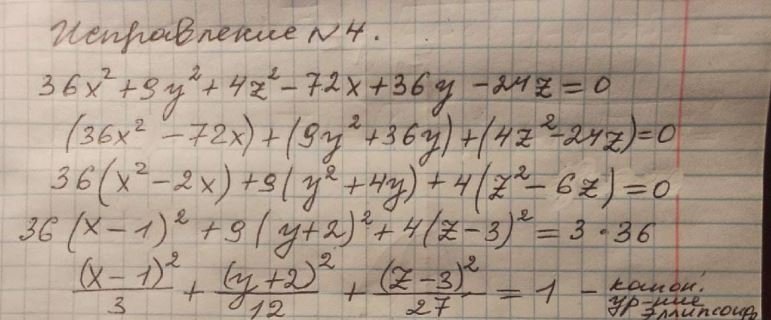 Исправление N4.
36x² + 9y² + 4z² - 72x + 36y - 24z = 0
(36x² - 72x) + (9y² + 36y) + (4z² - 24z) = 0
36(x² - 2x) + 9(y² + 4y) + 4(z² - 6z) = 0
36(x - 1)² + 9(y + 2)² + 4(z - 3)² = 3 · 36
(x - 1)²/3 + (y + 2)²/12 + (z - 3)²/27 = 1 - канон.
ур-ние
эллипсоида